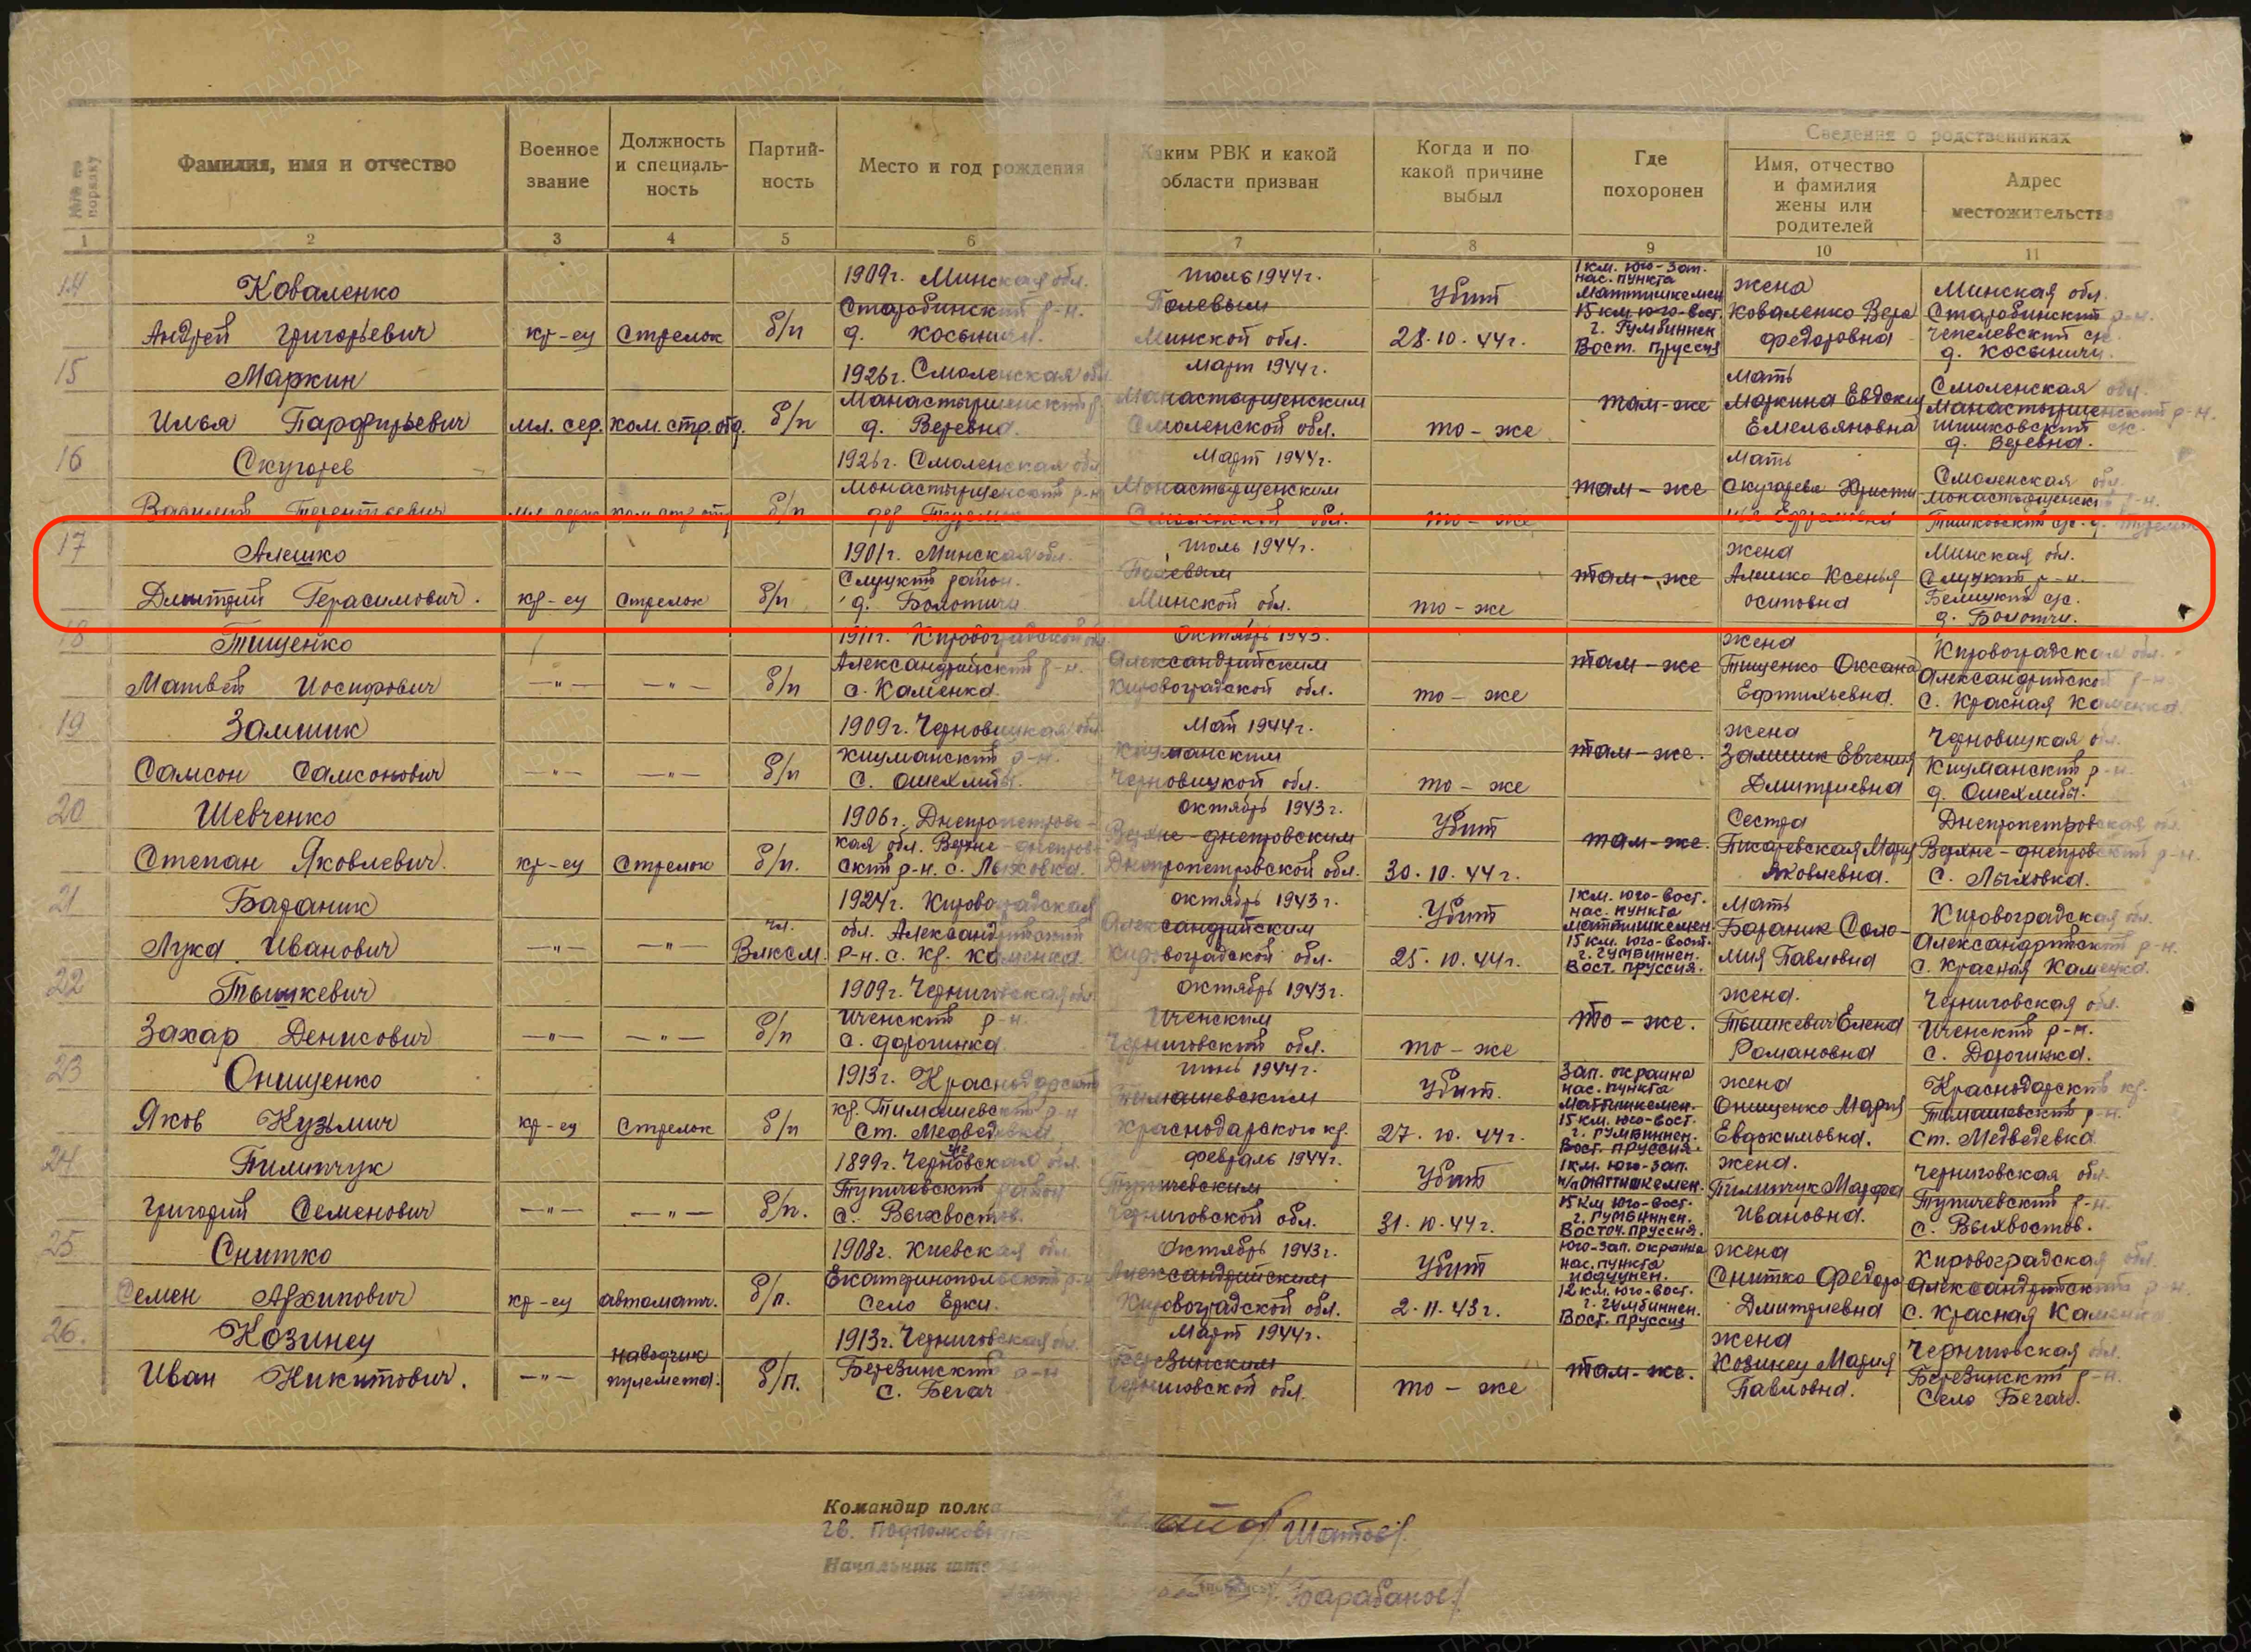 Сведения о родственниках
№№ по порядку
Фамилия, имя и отчество
Военное звание
Должность и специальность
Партийность
Место и год рождения
Каким РВК и какой области призван
Когда и по какой причине выбыл
Где похоронен
Имя, отчество и фамилия жены или родителей
Адрес местожительства
1 2 3 4 5 6 7 8 9 10 11
14 Коваленко 1909г. Минская обл. Июль 1944г. 1 км. юго-зап. нас. пункта жена Минская обл.
Старобинский р-н. Полевым Убит Маттишкемен 15 км юго-вост. Коваленко Вера Старобинский р-н.
Андрей Григорьевич кр-ец Стрелок б/п д. Косыничи. Минской обл. 28.10.44г. г. Гумбиннен Вост. Пруссия Федоровна Чепелевский с/с. д. Косыничи.
15 Маркин 1926г. Смоленская обл. Март 1944г. мать Смоленская обл.
Манастырщенский р Манастырщенским там-же Маркина Евдокия Манастырщенский р-н.
Илья Парфирьевич мл. сер. ком. стр. отд. б/п д. Веревна. Смоленской обл. то-же Емельяновна Шишковский с/с. д. Веревна.
16 Скугарев 1926г. Смоленская обл Март 1944г. мать Смоленская обл.
Монастырщенский р-н Монастырщенским там-же Скугарева Христи Монастырщенский р-н.
Василий Терентьевич б/п Смоленской обл. то-же Тишковский с/с.
17 Алешко 1901г. Минская обл. Июль 1944г. жена Минская обл.
Слуцкий район. Полевым там-же Алешко Ксенья Слуцкий р-н.
Дмитрий Герасимович. кр-ец Стрелок б/п д. Болотчи Минской обл. то-же осиповна Белицкий с/с. д. Болотчи.
18 Тищенко 1911г. Кировоградской обл. Октябрь 1943. жена Кировоградская обл.
Александрийский р-н. Александрийским там-же Тищенко Оксана Александрийской р-н.
Матвей Иосифович —"— —"— б/п с. Каменка. Кировоградской обл. то-же Ефтихьевна. С. Красная Каменка.
19 Замшик 1909г. Черновицкая обл Май 1944г. жена Черновицкая обл.
Кицманский р-н. Кицманским там-же. Замшик Евгения Кицманский р-н
Самсон Самсонович —"— —"— б/п С. Ошехлибы. Черновицкой обл. то-же Дмитриевна д. Ошехлибы.
20 Шевченко 1906г. Днепропетровс- Октябрь 1943г. Сестра Днепропетровская обл.
кая обл. Верхне-днепров- Верхне-днепровским Убит там-же. Писаревская Мария Верхне-днепровский р-н.
Степан Яковлевич. кр-ец Стрелок б/п. ский р-н. с. Лыховка. Днепропетровской обл. 30.10.44г. Яковлевна. С. Лыховка.
21 Бараник 1924г. Кировоградская октябрь 1943г. 1 км. юго-вост. нас. пункта мать Кировоградская обл.
чл. обл. Александрийский Александрийским Убит маттишкемен. Бараник Соло- Александрийский р-н.
Лука Иванович —"— —"— Влксм. р-н. с. Кр. Каменка. Кировоградской обл. 25.10.44г. 15 км. юго-вост. г. Гумбиннен. Вост. Пруссия. мия Павловна с. Красная Каменка.
22 Тышкевич 1909г. Черниговская обл октябрь 1943г. жена. Черниговская обл.
Иченский р-н. Иченским то-же. Тышкевич Елена Иченский р-н.
Захар Денисович —"— —"— б/п с. Дорогинка. Черниговской обл. то-же Романовна с. Дорогинка.
23 Онищенко 1913г. Краснодарский июнь 1944г. Зап. окраина нас. пункта жена Краснодарский кр.
кр. Тимашевский р-н Тимашевским Убит. Маттишкемен. Онищенко Мария Тимашевский р-н.
Яков Кузьмич кр-ец Стрелок б/п Ст. Медведовка Краснодарского кр. 27.10.44г. 15 км. юго-вост. г. Гумбиннен. Вост. Пруссия. Евдокимовна. Ст. Медведевка
24 Пилипчук 1899г. Черниговская обл. февраль 1944г. 1 км. юго-зап. жена. Черниговская обл.
Тупичевский район Тупичевским Убит н/п Маттишкемен. Пилипчук Марфа Тупичевский р-н.
Григорий Семенович —"— —"— б/п. с. Выхвостов. Черниговской обл. 31.10.44г. 15 км юго-вост. г. Гумбиннен. Восточ. Пруссия. Ивановна. с. Выхвостов.
25 Снитко 1908г. Киевская обл Октябрь 1943г. Юго-зап. окраина жена Кировоградская обл.
Екатеринопольский р-н Александрийским Убит нас. пункта Снитко Федора Александрийский р-н.
Семен Архипович кр-ец автоматч. б/п. Село Ерки. Кировоградской обл. 2.11.43г. 12 км. юго-вост. г. Гумбиннен. Вост. Пруссия Дмитриевна с. Красная Каменка
26. Козинец 1913г. Черниговская обл. Март 1944г. жена Черниговская обл.
наводчик Березинский р-н Березинским там-же. Козинец Мария Березинский р-н.
Иван Никитович. —"— пулемета. б/п. с. Бегач Черниговской обл. то-же Павловна. Село Бегач.
Командир полка
гв. Подполковник /Шатов/.
Начальник шта
/Барабанов/.
ПАМЯТЬ НАРОДА